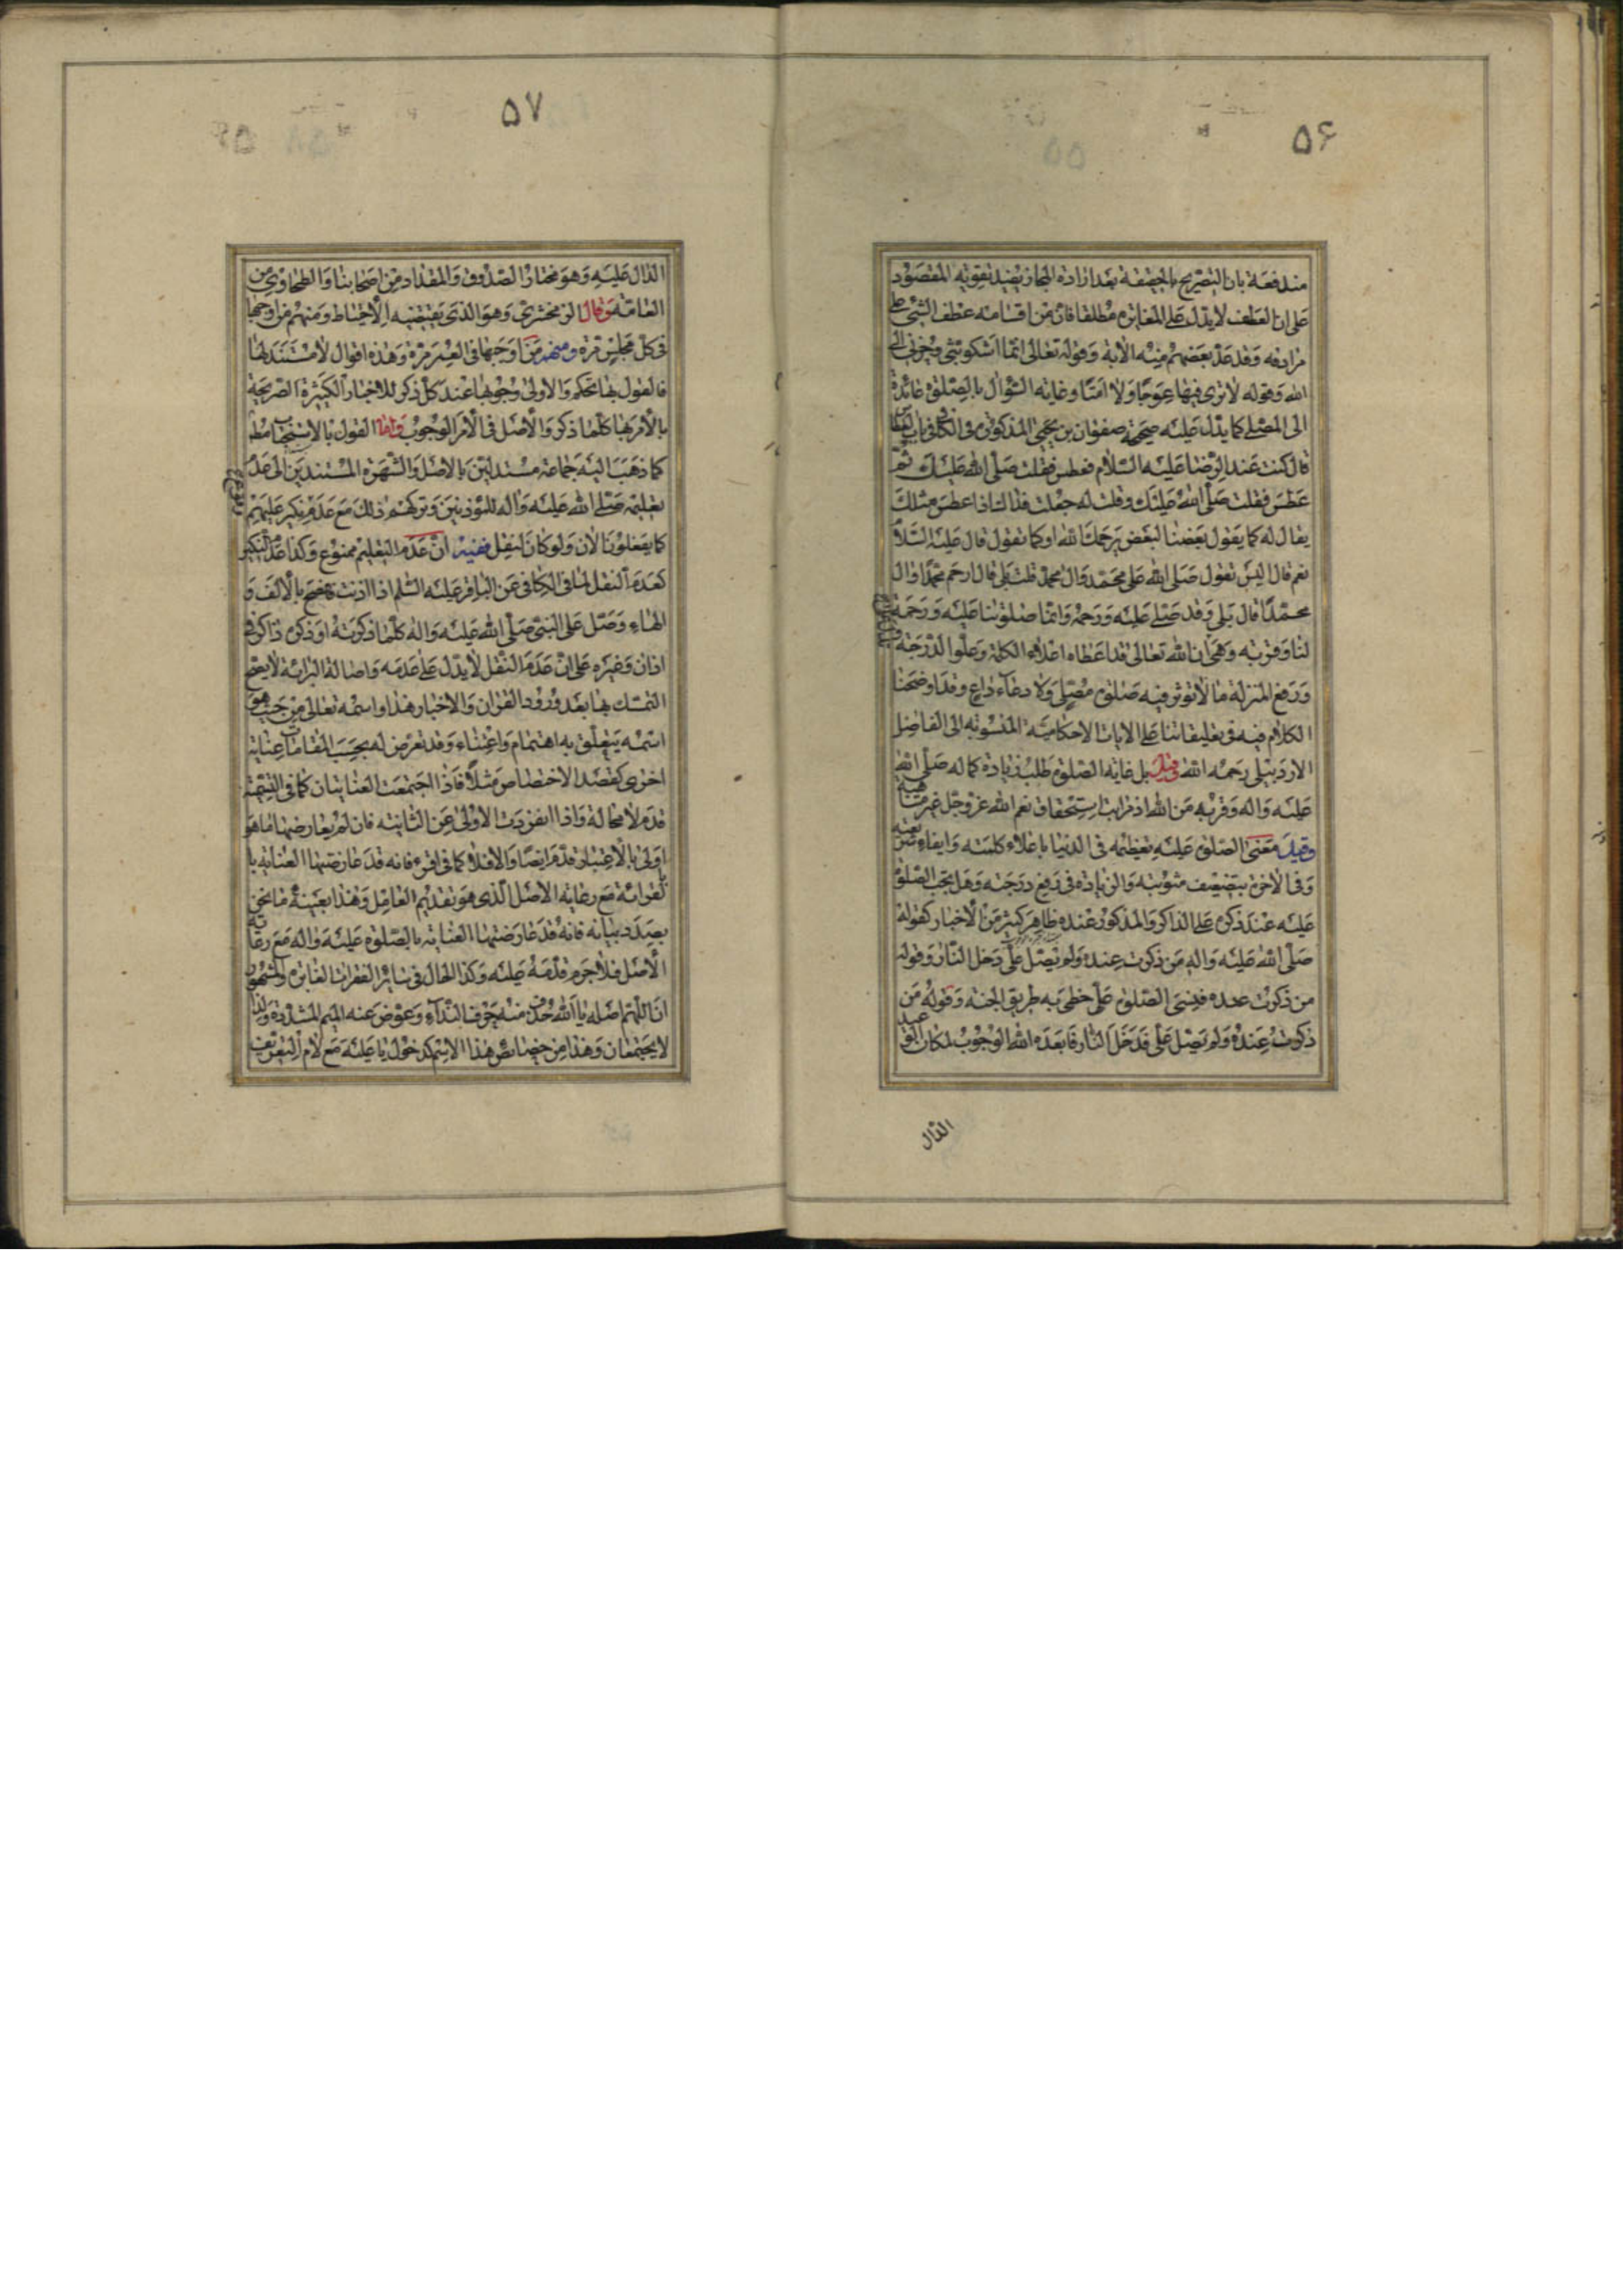 ۵۶
مندفعة بان التصريح بالحقيقة بعد ارادة المجاز يفيد تقوية المقصود
على ان العطف لا يدل على المغايرة مطلقا فان من اقسامه عطف الشئ على
مرادفه وقد عد بعضهم منه الاية وقوله تعالى انما اشكو بثى وحزنى الى
الله وقوله لا ترى فيها عوجا ولا امتا وغاية السؤال بالصلوة عائدة
الى المصلى كما يدل عليه صحيحة صفوان بن يحيى المذكورة فى الكافى فى باب العطاس
قال كنت عند الرضا عليه السلام فعطس فقلت صلى الله عليك ثم
عطس فقلت صلى الله عليك وقلت له جعلت فداك اذا عطس مثلك
يقال له كما يقول بعضنا لبعض يرحمك الله او كما نقول قال عليه السلام
نعم قال اليس تقول صلى الله على محمد وال محمد قلت بلى قال ارحم محمدا وال
محمد قال بلى وقد صلى عليه ورحمه وانما صلوتنا عليه ورحمة
لنا وقربة وهى ان الله تعالى قد اعطاه اعلاء الكلمة وعلو الدرجة
ورفع المنزلة ما لا تؤثر فيه صلوة مصل ولا دعاء داع وقد اوضحنا
الكلام فيه فى تعليقاتنا على الايات الاحكامية المنسوبة الى الفاضل
الاردبيلى رحمه الله وقيل بل غاية الصلوة طلب زيادة كماله صلى الله
عليه واله وقربه من الله اذ مراتب استحقاق نعم الله عز وجل غير متناهية
وقيل معنى الصلوة عليه تعظيمه فى الدنيا باعلاء كلمته وابقاء شريعته
وفى الاخرة بتضعيف مثوبته والزيادة فى رفع درجته وهل يجب الصلوة
عليه عند ذكره على الذاكر والمذكور عنده ظاهر كثير من الاخبار كقوله
صلى الله عليه واله من ذكرت عنده ولم يصل على دخل النار وقوله
من ذكرت عنده فنسى الصلوة على خطئ به طريق الجنة وقوله من
ذكرت عنده ولم يصل على قد دخل النار فابعده الله الوجوب لمكان الوعيد
الدال
۵۷
الدال عليه وهو مختار الصدوق والمقداد من اصحابنا والطحاوى من
العامة وقال الزمخشرى وهو الذى يقتضيه الاحتياط ومنهم من اوجبها
فى كل مجلس مرة ومنهم من اوجبها فى العمر مرة وهذه اقوال لا مستند لها
فالقول بها تحكم والاولى وجوبها عند كل ذكر للاخبار الكثيرة الصريحة
بالامر بها كلما ذكر والاصل فى الامر الوجوب واما القول بالاستحباب مطلقا
كما ذهب اليه جماعة مستدلين بالاصل والشهرة المستندين الى عدم
تعليمه صلى الله عليه واله للمؤذنين وتركهم ذلك مع عدم نكير عليهم
كما يفعلون الان ولو كان لنقل ففيه ان عدم التعليم ممنوع وكذا عدم النكير
كعدم النقل لما فى الكافى عن الباقر عليه السلم اذا اذنت فافصح بالالف و
الهاء وصل على النبى صلى الله عليه واله كلما ذكرته او ذكره ذاكر فى
اذان وغيره على ان عدم النقل لا يدل على عدمه واصالة البرائة لا يصح
التمسك بها بعد ورود القران والاخبار هذا واسمه تعالى من حيث هو
اسمه يتعلق به اهتمام واعتناء وقد تعرض له بحسب المقامات عناية
اخرى كقصد الاختصاص مثلا فاذا اجتمعت العنايتان كما فى التسمية
قدم لا محالة واذا انفردت الاولى عن الثانية فان لم يعارضها ما هو
اولى بالاعتبار قدم ايضا والا فلا كما فى اقرء فانه قد عارضتها العناية با
لقرائة مع رعاية الاصل الذى هو تقديم العامل وهذا بعينه ما نحن
بصدد بيانه فانه قد عارضتها العناية بالصلوة عليه واله مع رعاية
الاصل فلا جرم قدمه عليه وكذا الحال فى سائر الفقرات الغابرة والمشهور
ان اللهم اصله يا الله حذف منه حرف النداء وعوض عنه الميم المشددة ولذا
لا يجتمعان وهذا من خصايص هذا الاسم كدخول يا عليه مع لام التعريف